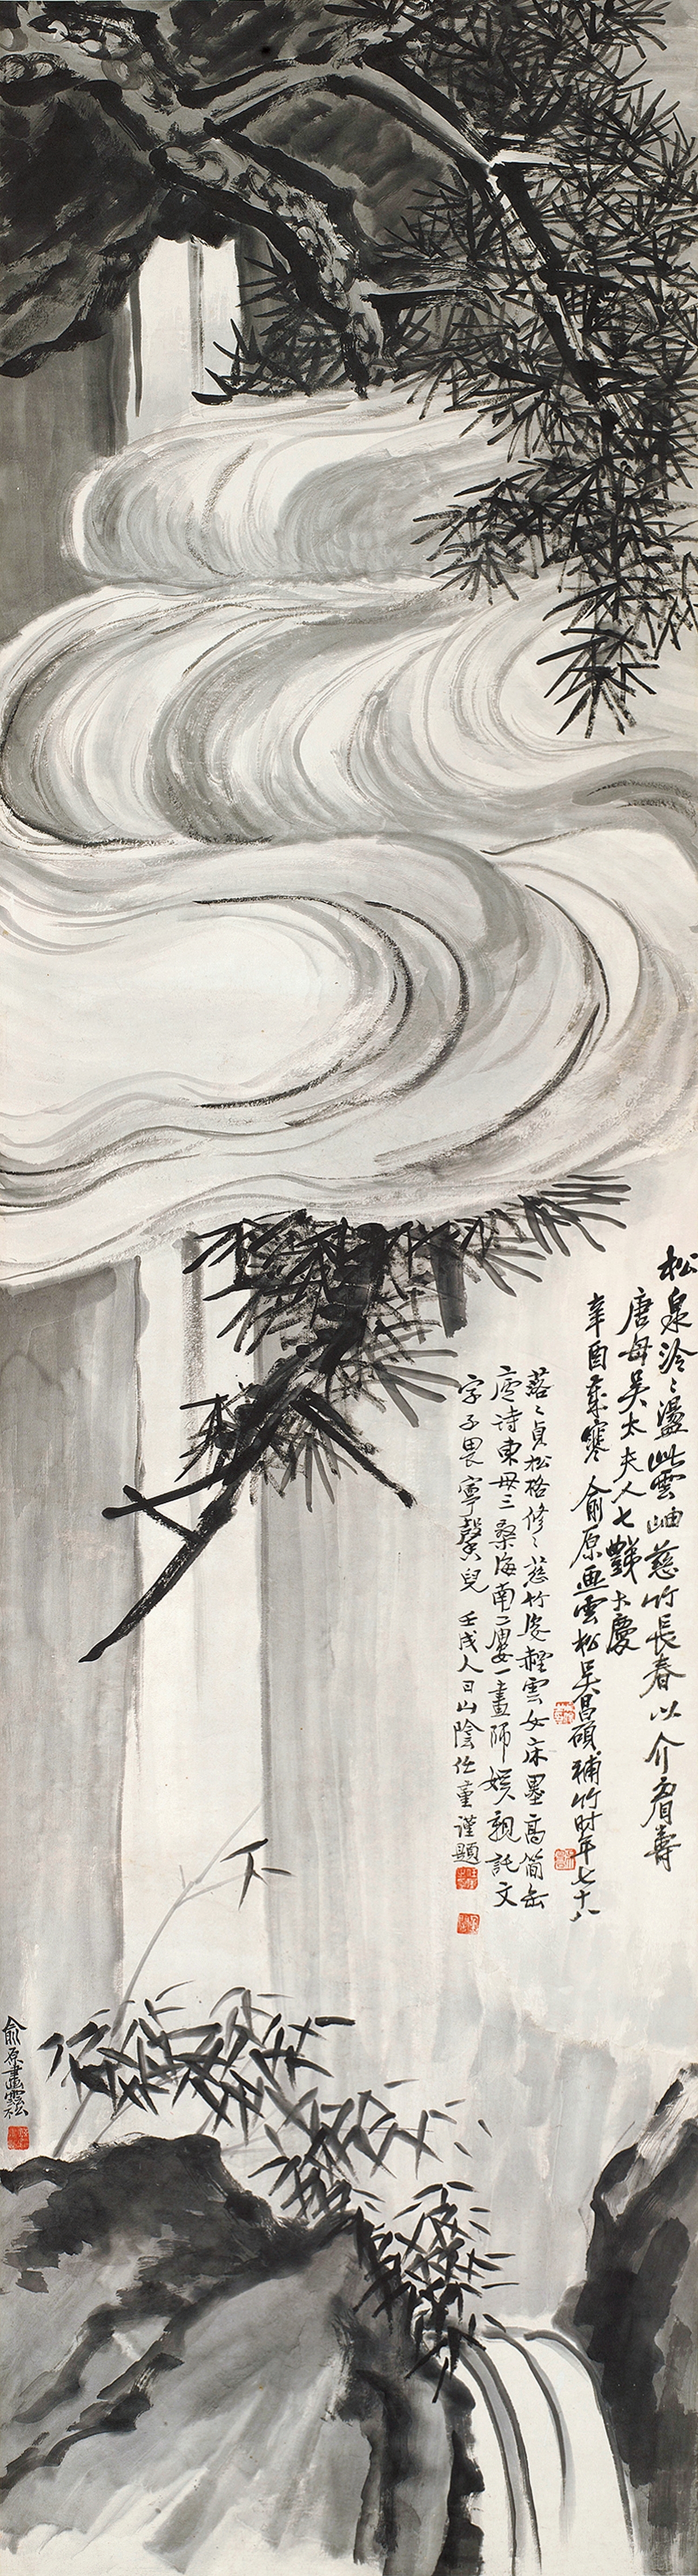 松泉泠泠盪此雲岫慈竹長春以介眉壽
唐母吳太夫人七豑大慶
辛酉嚴寒俞原畫雲松吳昌碩補竹时年七十八
落落貞松格修修慈竹姿襟雲女床墨高簡缶
廬詩東母三桑海南二畫師娛親託文
字子畏寧馨兒 壬戌人日山陰任堇謹題
俞原畫雲松